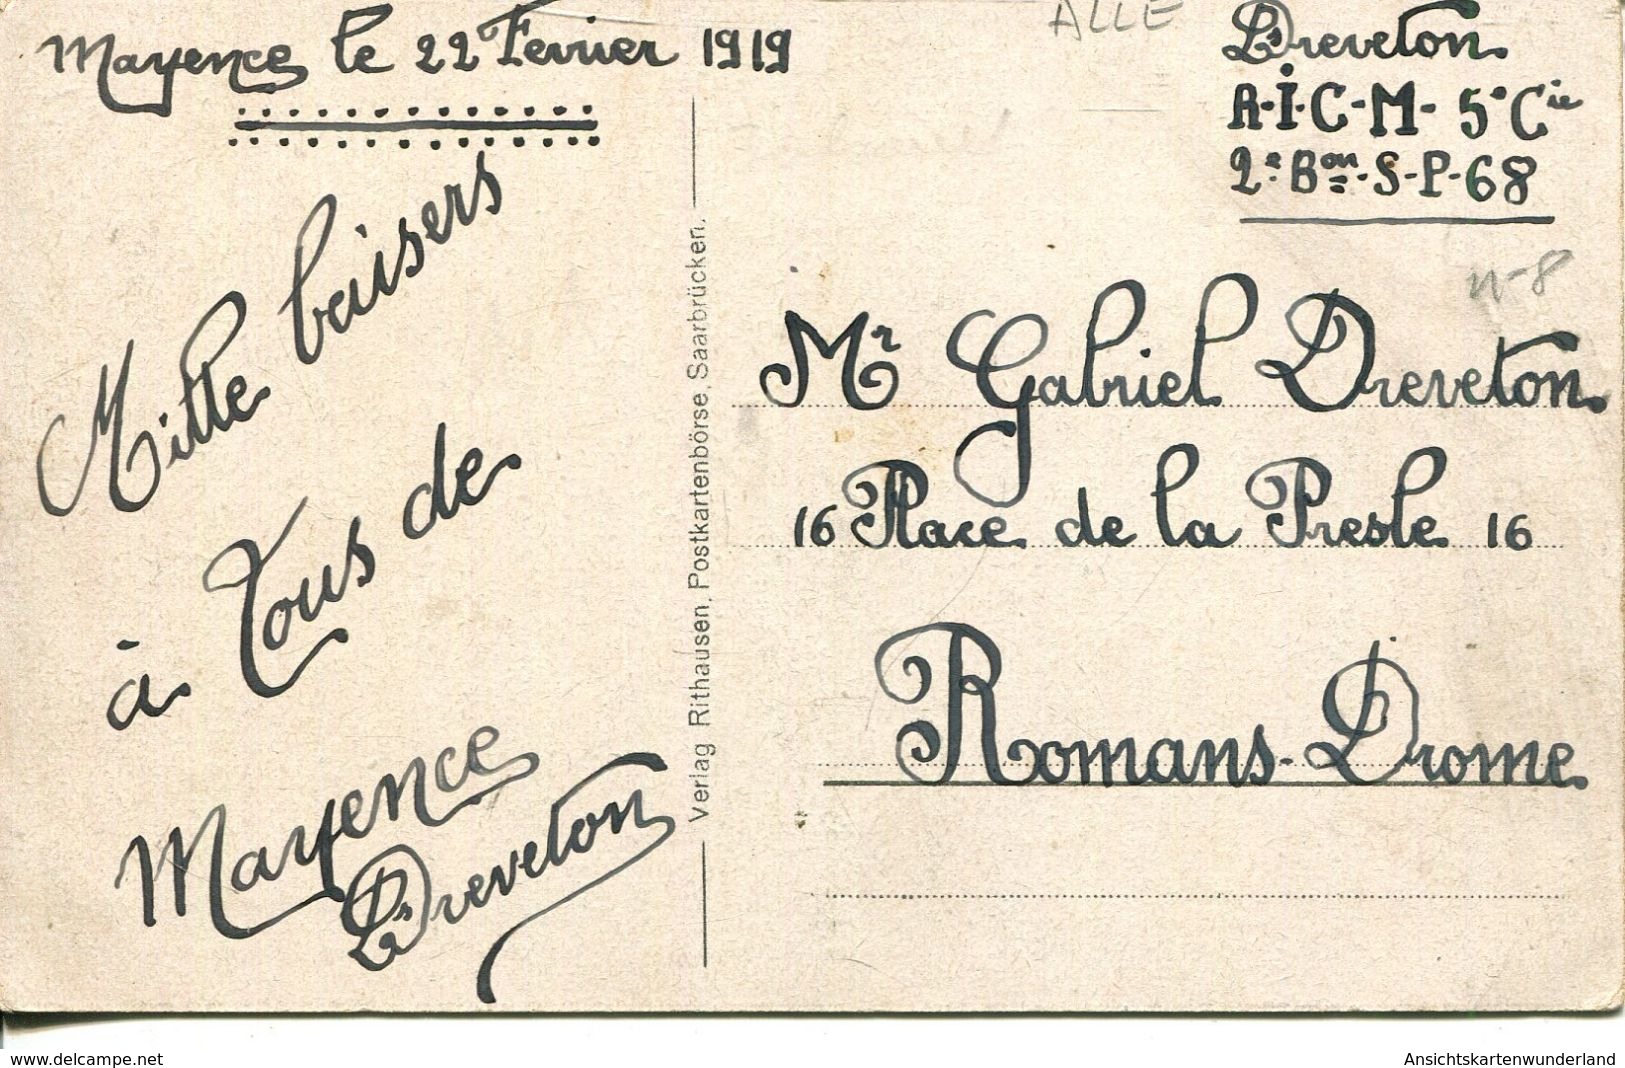 Mayence le 22 Fevrier 1919
Mille baisers
à Tous de
Mayence
Dreveton
Verlag Rithausen, Postkartenbörse, Saarbrücken.
ALLE
Dreveton
R-I-C-M- 5e Cie
2e Bon-S-P-68
n-8
Mr Gabriel Dreveton
16 Place de la Presle 16
Romans-Drome
www.delcampe.net
Ansichtskartenwunderland